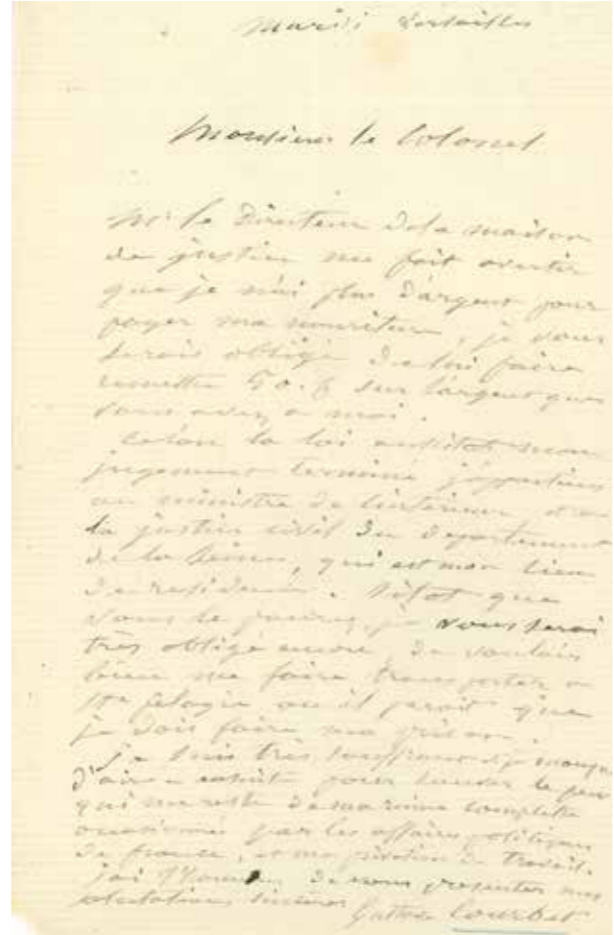 Mardi Versailles
Monsieur le Colonel
Mr le Directeur de la maison
de justice me fait avertir
que je n'ai plus d'argent pour
payer ma nourriture, je vous
serais obligé de lui faire
remettre 50. f sur l'argent que
vous avez a moi.
Selon la loi aussitot mon
jugement terminé j'appartiens
au ministre de l'interieur et a
la justice civil du departement
de la Seine, qui est mon lieu
de residence. Sitot que
vous le pourrez, je vous serai
très obligé encore, de vouloir
bien me faire transporter a
Ste Pelagie ou il parait que
je dois faire ma prison.
je suis très souffrant et je manque
d'air ensuite pour sauver le peu
qui me reste de ma ruine complette
occasionnée par les affaires politiques
de france, et ma privation de travail.
j'ai l'honneur de vous presenter mes
salutations sincères
Gustave Courbet